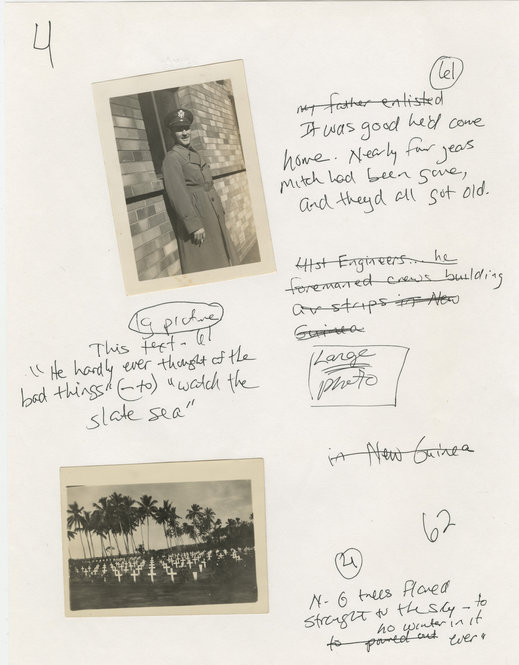 4
61
my father enlisted
It was good he'd come
home. Nearly four years
Mitch had been gone,
and they'd all got old.
41st Engineers... he
foremaned crews building
air strips in New
Guinea
Large
photo
lg picture
This text - 61
"He hardly ever thought of the
bad things" (— to) "watch the
slate sea"
in New Guinea
62
4
N-G trees flared
straight to the sky - to
no winter in it
to ever"